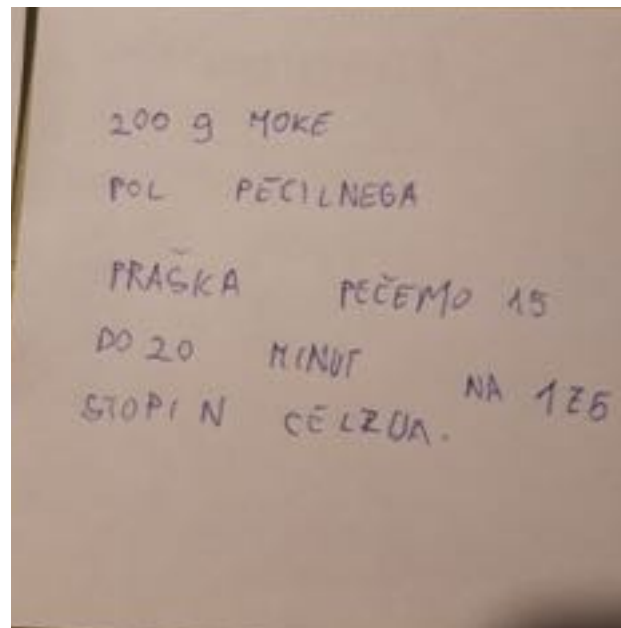 200 g MOKE
POL PECILNEGA
PRAŠKA PEČEMO 15
DO 20 MINUT NA 175
STOPIN CELZIJA.